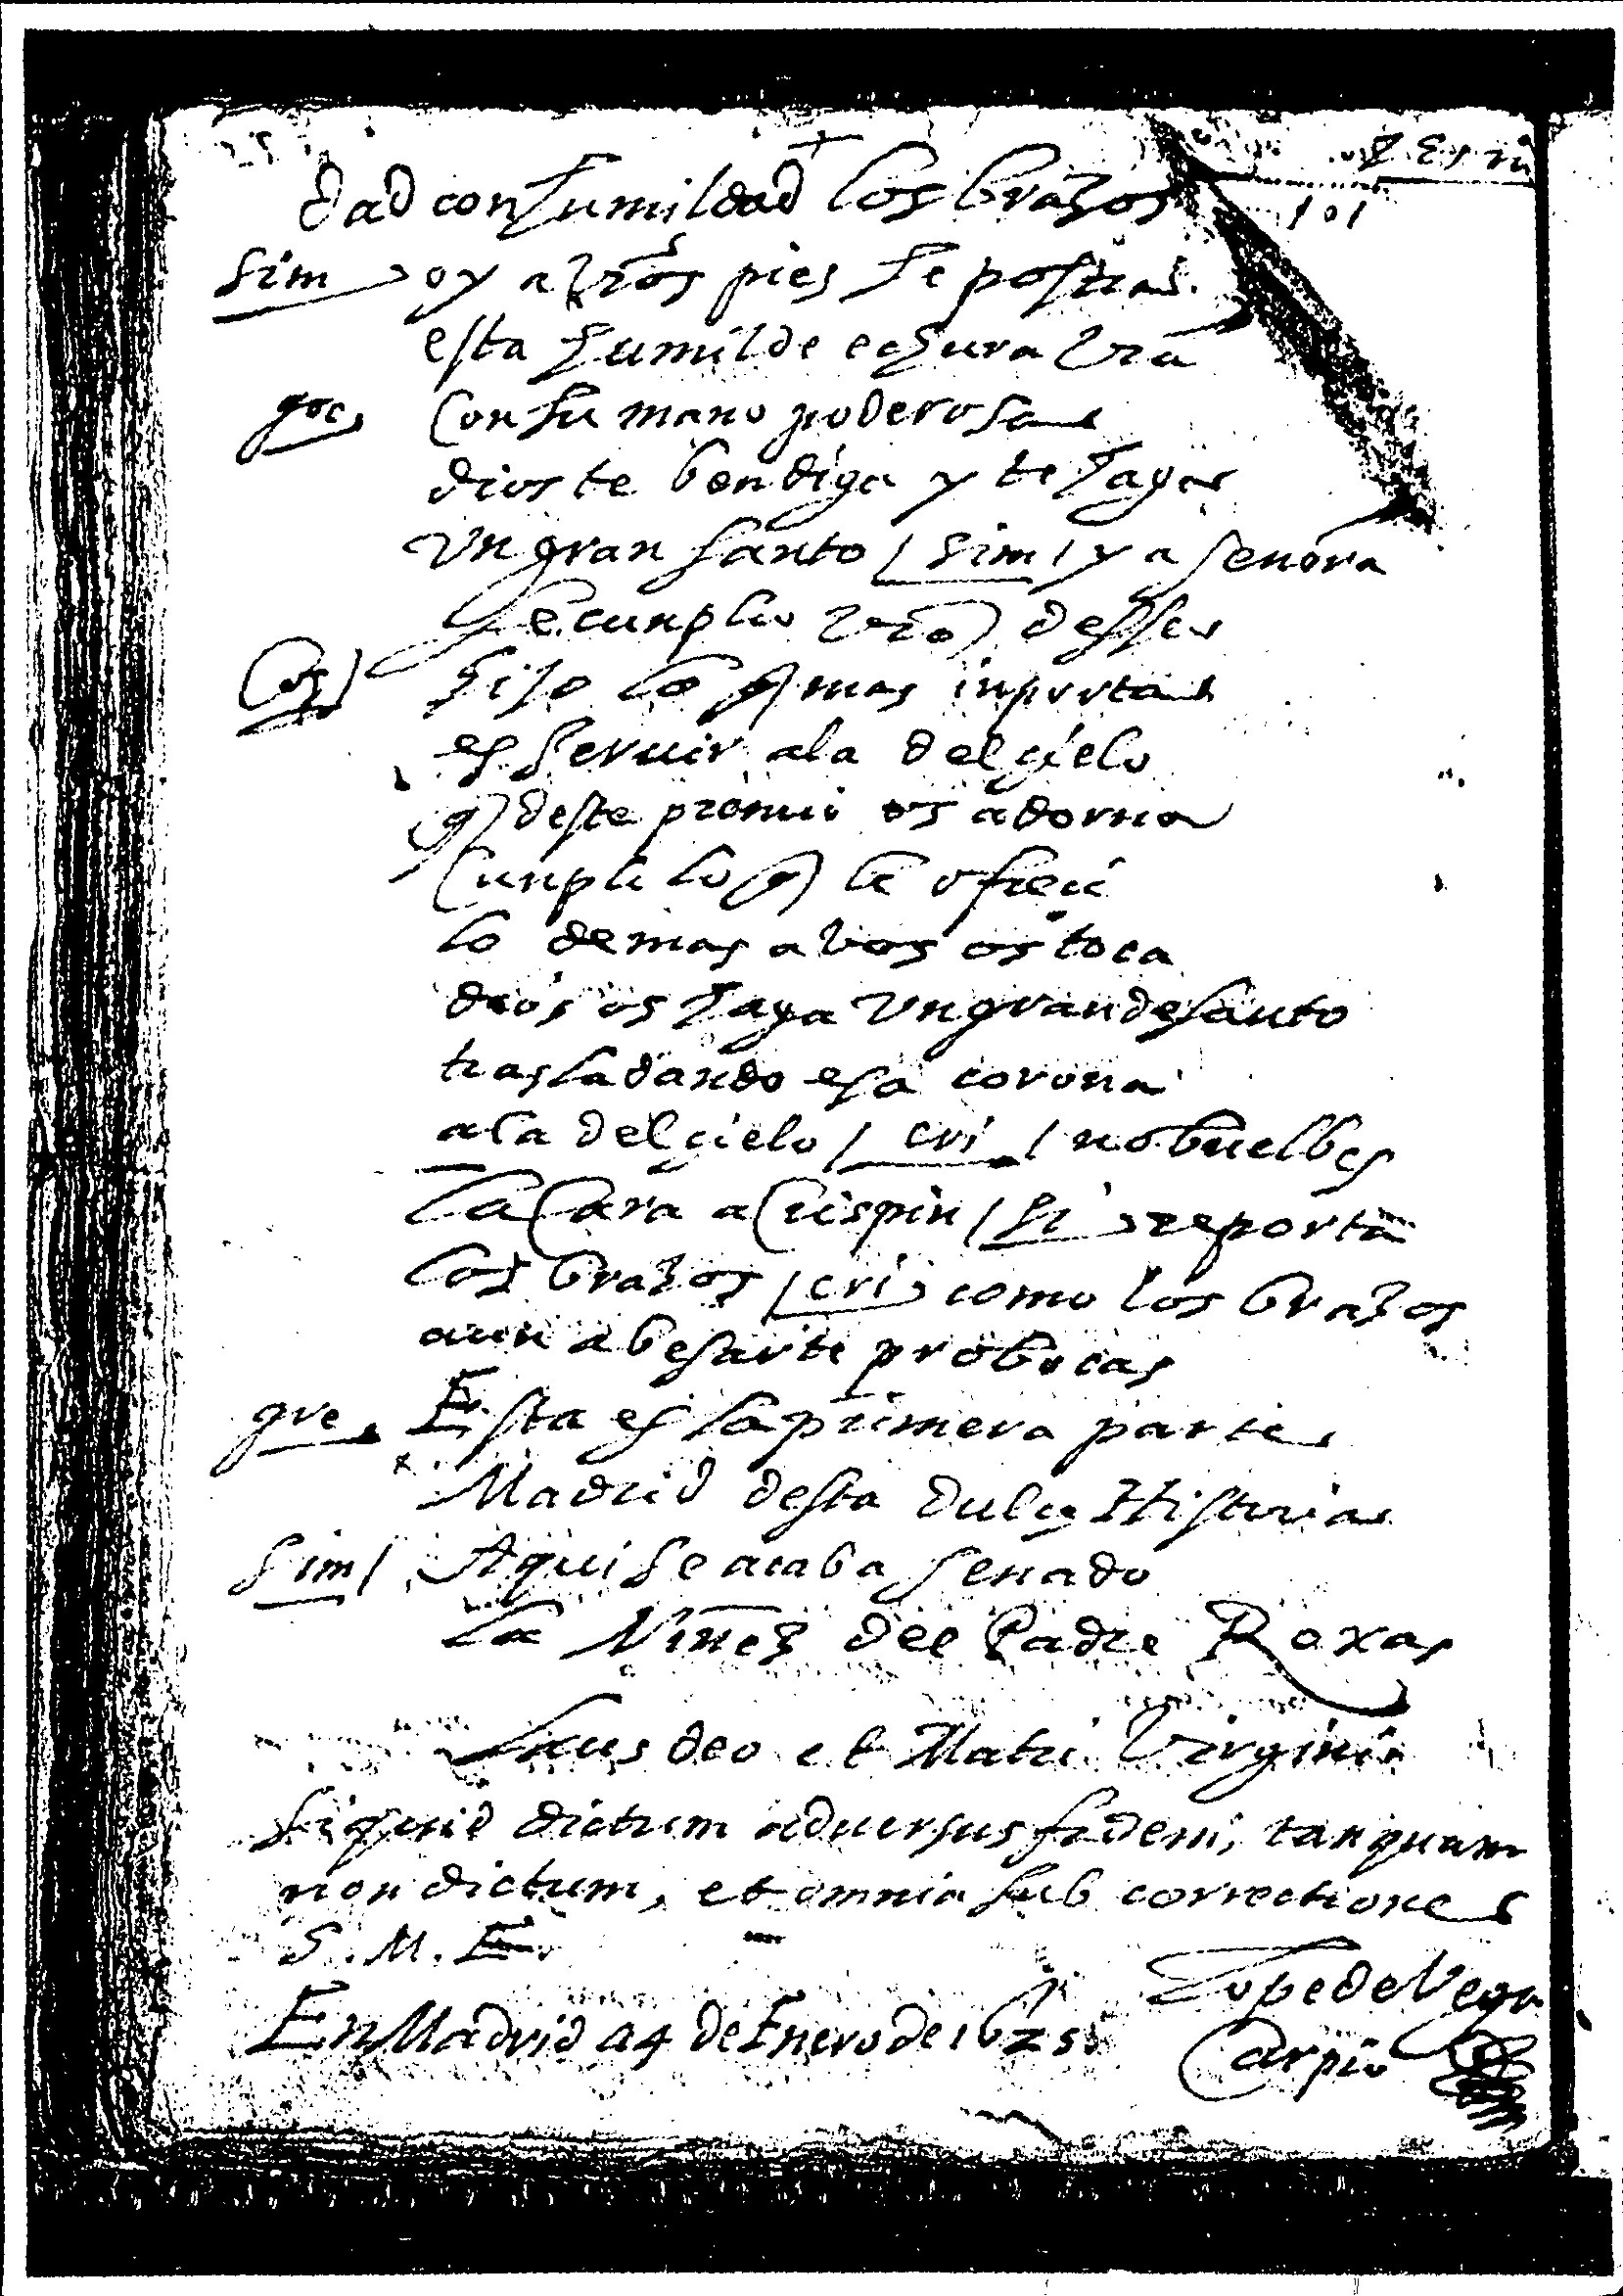 101
dad con humildad los brazos
sim oy a vr̃os pies se postra
esta humilde echura vr̃a
goc con su mano poderosa
dios te bendiga y te haga
un gran santo / sim / ya señora
se cunplio vr̃o desseo
cos hijo lo q̃ mas inporta
es seruir a la del çielo
q̃ deste premio os adorna
cunpli lo q̃ le ofreci
lo demas a vos os toca
dios os haga un grande santo
trasladando esa corona
a la del çielo / cri / no buelbes
la cara a Crispin / si reporta
los brazos / cri como los brazos
aun a besarte probocas
gre Esta es la primera parte
Madrid desta dulçe Historia
sim / Aqui se acaba senado
la Niñez del Padre Roxas
Laus deo et Matri Virgini
si quid dictum aduersus fidem, tanquam
non dictum, et omnia sub correctione
S. M. E.
Lope de Vega
En Madrid a 4 de Enero de 1625
Carpio